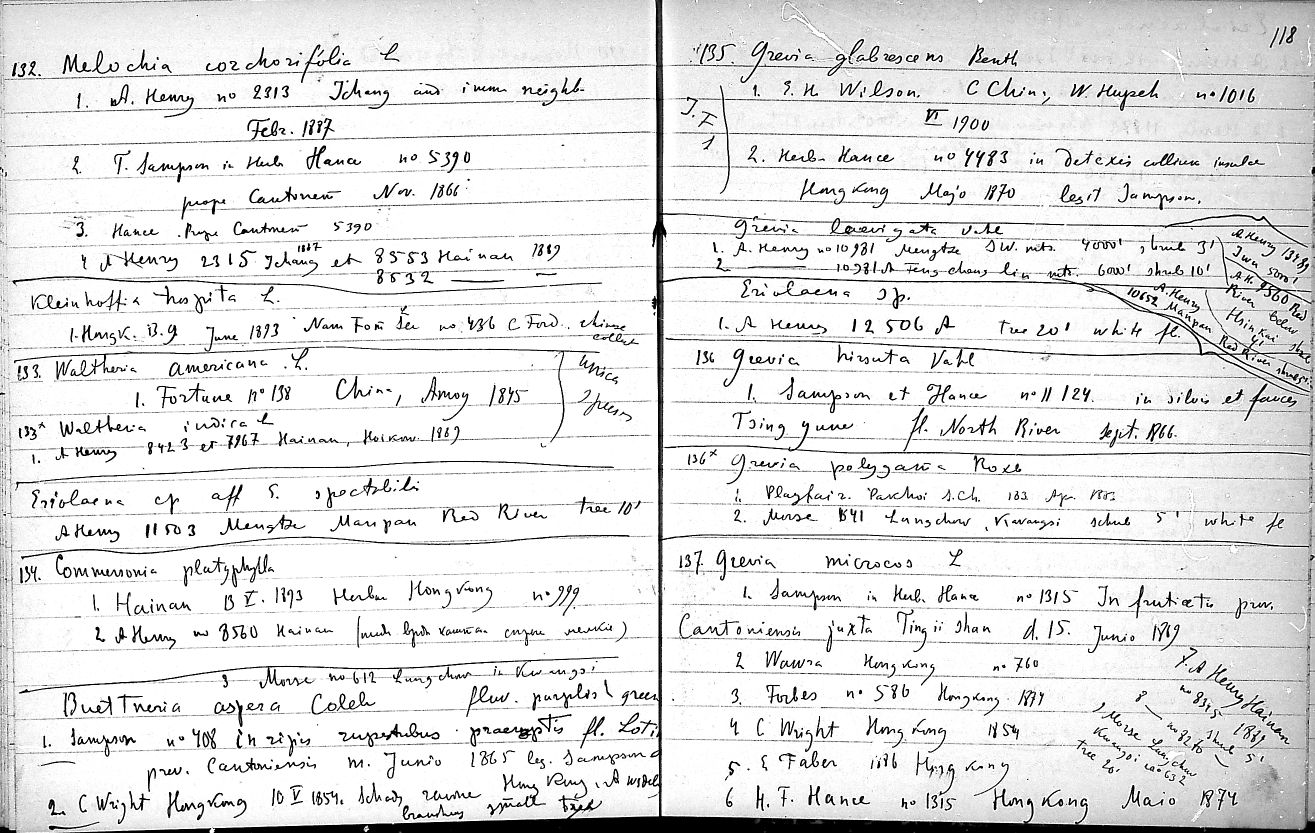 132. Melochia corchorifolia L
1. A. Henry no 2313 Ichang and imm neighb.
Febr. 1887
2. T. Sampson in Herb Hance no 5390
prope Cantonem Nov. 1866
3. Hance Prope Cantonem 5390
4 A Henry 2315 Ichang 1887 et 8553 Hainan 1889
8532 —
Kleinhoffia hospita L.
1. Hongk. B.g June 1893 no. 436 C Ford. chinese collect
133. Waltheria americana L.
1. Fortune no 138 China, Amoy 1845
unica specim
133* Waltheria indica L
1. A Henry 8423 et 7967 Hainan, Hoikow. 1869
Eriolaena sp aff E. spectabili
A Henry 11503 Mengtze Manpan Red River tree 10'
134. Commersonia platyphylla
1. Hainan B V. 1893 Herb. Hongkong no 999
2 A Henry no 8560 Hainan
3 Morse no 612 Lungchow in Kwangsi
Buettneria aspera Coleb flow. purplish green
1. Sampson no 408 in ripis rupestribus praeruptis fl.
prov. Cantoniensis m. Junio 1865 leg. Sampson
2. C Wright Hongkong 10 V 1854. Shady ravine Hong Kong,
branches small
118
135. Grevia glabrescens Benth
J. F 1
1. E. H Wilson. C China, W. Hupeh no 1016
VI 1900
2. Herb. Hance no 4483 in collium insulae
HongKong Majo 1870 legit Sampson.
Grevia laevigata Vahl
1. A. Henry no 10981 Mengtze S.W. mts. 4000' shrub 3'
2 — 10981 A Feng chang lin mts. 6000' shrub 10'
A Henry
5000'
A.H. 9560 Red
River below
Hsin Kai shrub
4'
A. Henry
10652 Manpan Red River shrub
Eriolaena sp.
1. A Henry 12506 A tree 20' white fl.
136 Grevia hirsuta Vahl
1. Sampson et Hance no 11124. in silvis et fauces
Tsing yune fl. North River sept. 1866.
136* Grevia polygama Roxb
1. Playfair. Pakhoi S.Ch. 183 Apr. 1883
2. Morse 541 Lungchow, Kwangsi schrub 5' white fl
137. Grevia microcos L
1. Sampson in Herb. Hance no 1315 In frutictis prov.
Cantoniensis juxta Tingii shan d. 15. Junio 1869
2 Wawra Hongkong no 760
3. Forbes no 586 Hongkong. 1874
4 C Wright HongKong 1854
5. E Faber 1886 HongKong
6 H. F. Hance no 1315 HongKong Maio 1874
7. A Henry Hainan
no 8345 1889
8 — no shrub 5'
9 Morse Lungchow
Kwangsi no 632
tree 20'